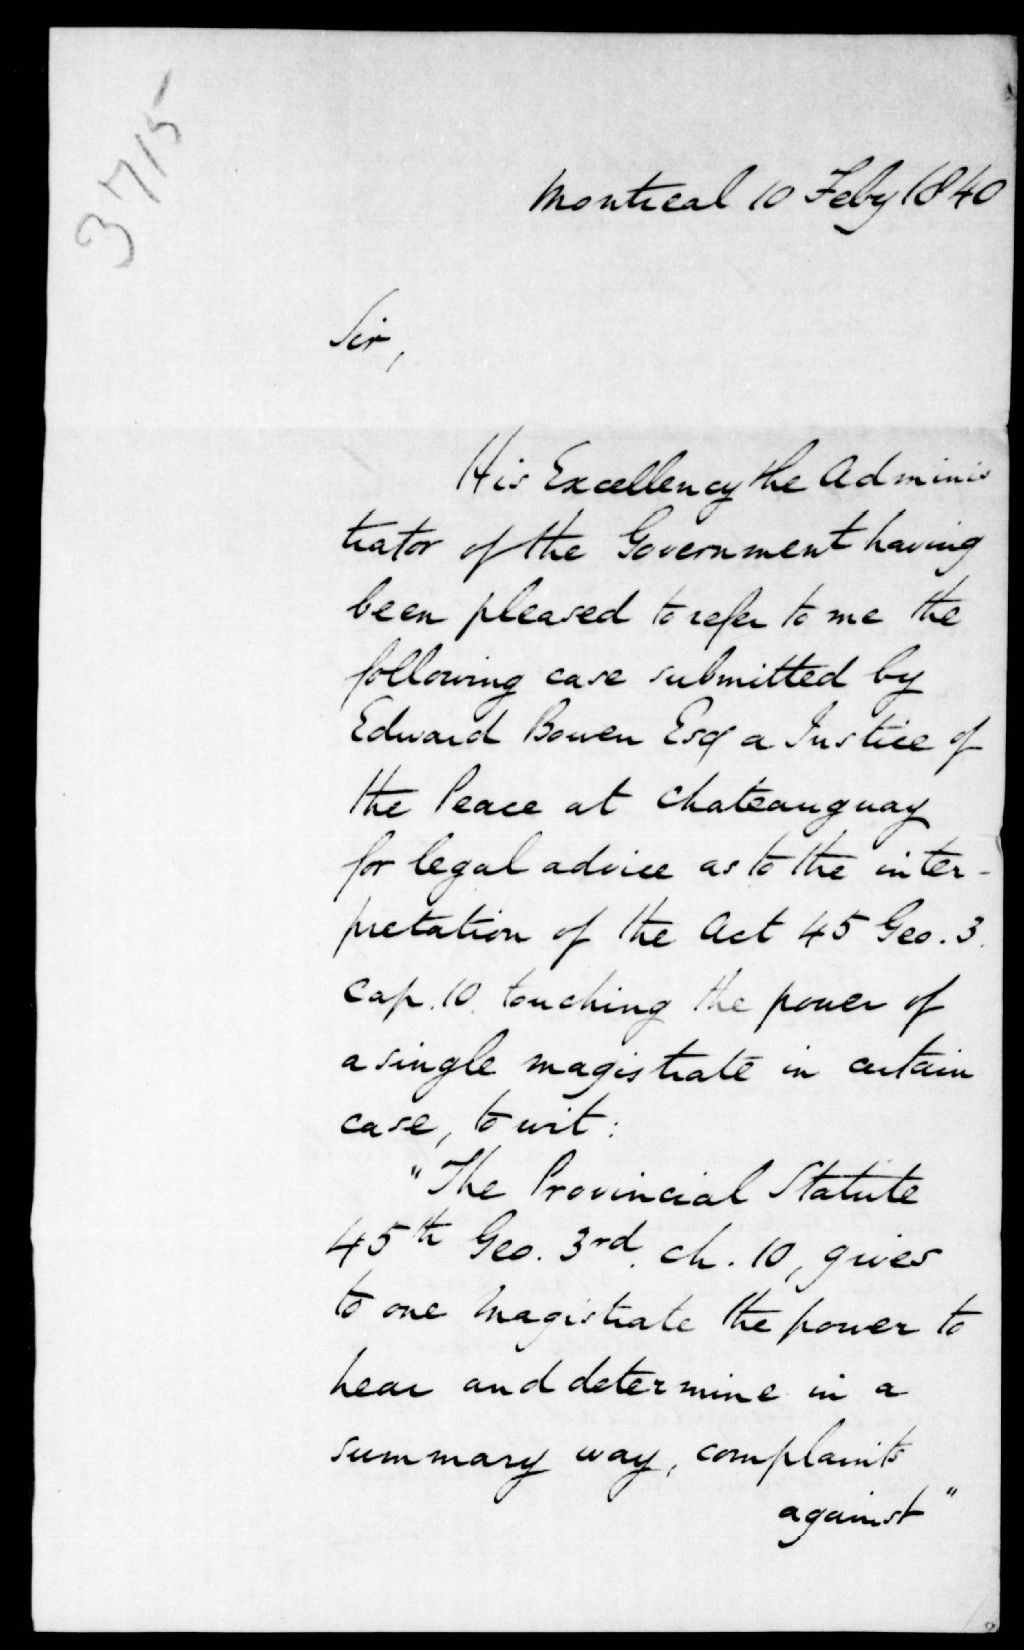 3715
Montreal 10 Feby 1840
Sir,
His Excellency the Adminis
trator of the Government having
been pleased to refer to me the
following case submitted by
Edward Bowen Esq a Justice of
the Peace at Chateauguay
for legal advice as to the inter-
pretation of the Act 45 Geo. 3.
cap. 10. touching the power of
a single magistrate in certain
case, to wit:
"The Provincial Statute
45th Geo. 3rd. ch. 10, gives
to one Magistrate the power to
hear and determine in a
summary way, complaints
against"